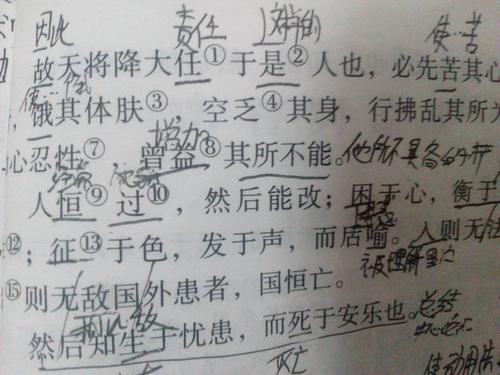 因此 责任 使…苦
故天将降大任①于是②人也，必先苦其心
，饿其体肤③，空乏④其身，行拂乱其所为
增加
心忍性⑦，曾益⑧其所不能。他所不具备的才
人恒⑨过⑩，然后能改；困于心，衡于
⑫；征⑬于色，发于声，而后喻。人则无法
被理解
⑮则无敌国外患者，国恒亡。
然后知生于忧患，而死于安乐也。总结
死亡 使动用法